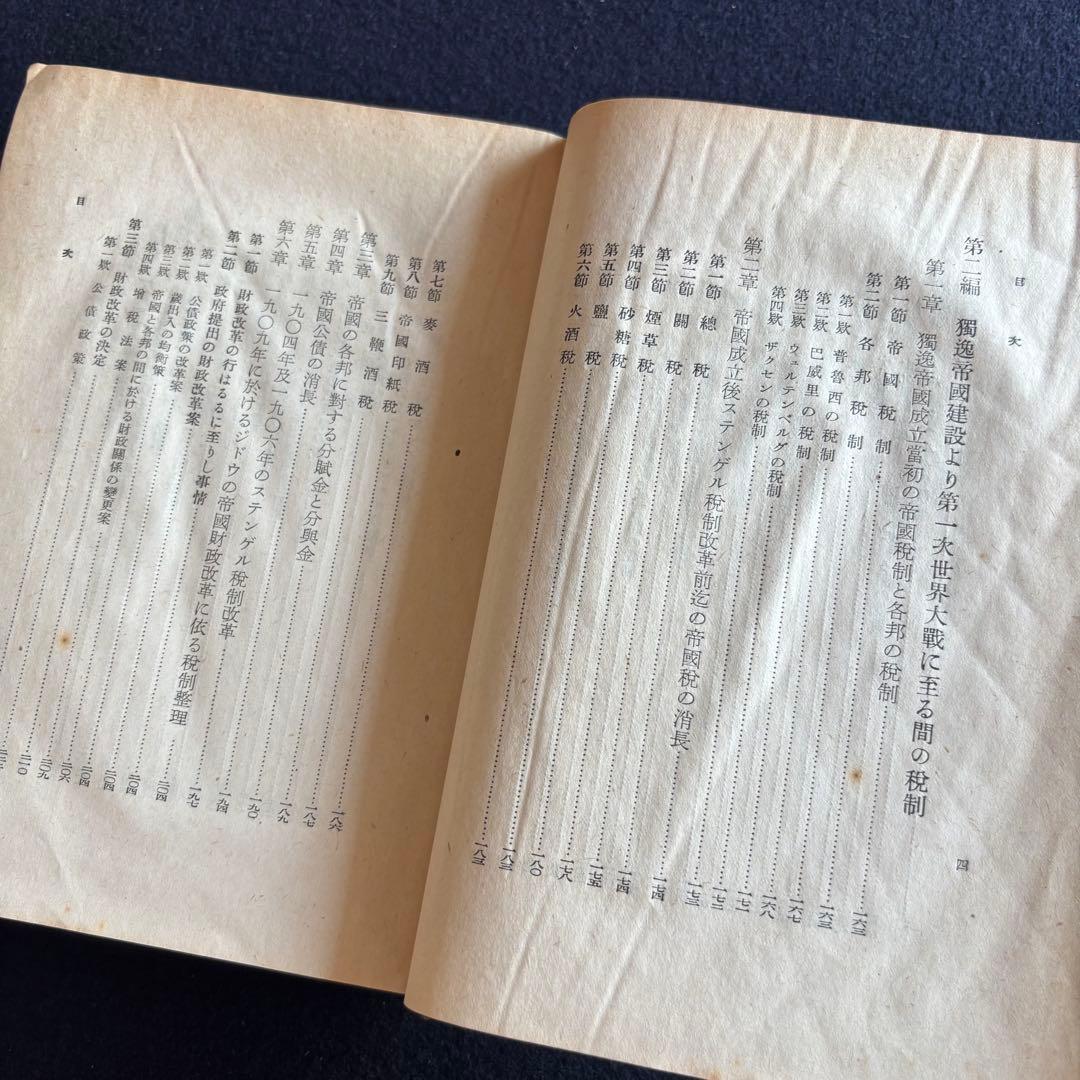 目次 四
第二編 獨逸帝國建設より第一次世界大戰に至る間の稅制
第一章 獨逸帝國成立當初の帝國稅制と各邦の稅制……一六三
第一節 帝國稅制……一六三
第二節 各邦稅制……一六七
第一欵 普魯西の稅制……一六八
第二欵 巴威里の稅制……一七一
第三欵 ウュルテンベルグの稅制……一七二
第四欵 ザクセンの稅制……一七三
第二章 帝國成立後ステンゲル稅制改革前迄の帝國稅の消長……一七四
第一節 總稅……一七四
第二節 關稅……一七五
第三節 煙草稅……一七八
第四節 砂糖稅……一八〇
第五節 鹽稅……一八三
第六節 火酒稅……一八五
目次
第七節 麥酒稅……一八六
第八節 帝國印紙稅……一八七
第九節 三鞭酒稅……一八九
第三章 帝國の各邦に對する分賦金と分與金……一九〇
第四章 帝國公債の消長……一九四
第五章 一九〇四年及一九〇六年のステンゲル稅制改革……一九七
第六章 一九〇九年に於けるジドウの帝國財政改革に依る稅制整理……二〇四
第一節 財政改革の行はるるに至りし事情……二〇四
第二節 政府提出の財政改革案……二〇四
第一欵 公債政策の改革案……二〇四
第二欵 歲出入の均衡策……二〇六
第三欵 帝國と各邦の間に於ける財政關係の變更案……二〇九
第四欵 增稅法案……二一〇
第三節 財政改革の決定……
第一欵 公債政策……